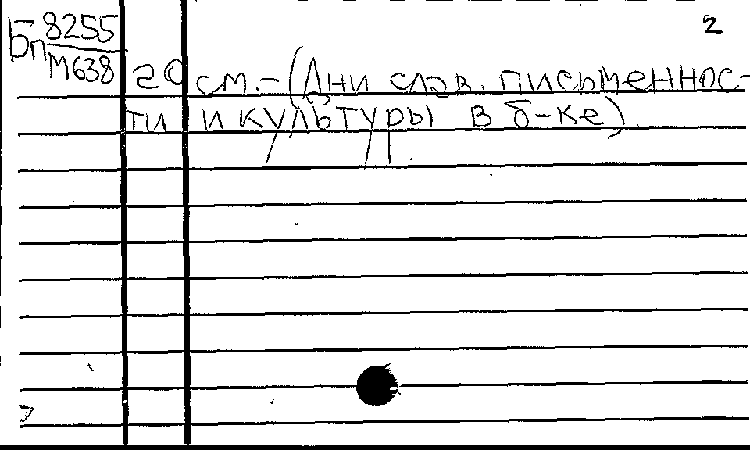 2
Бп 8255
М638
20 см.-(Дни слав. письменнос-
ти и культуры в б-ке)